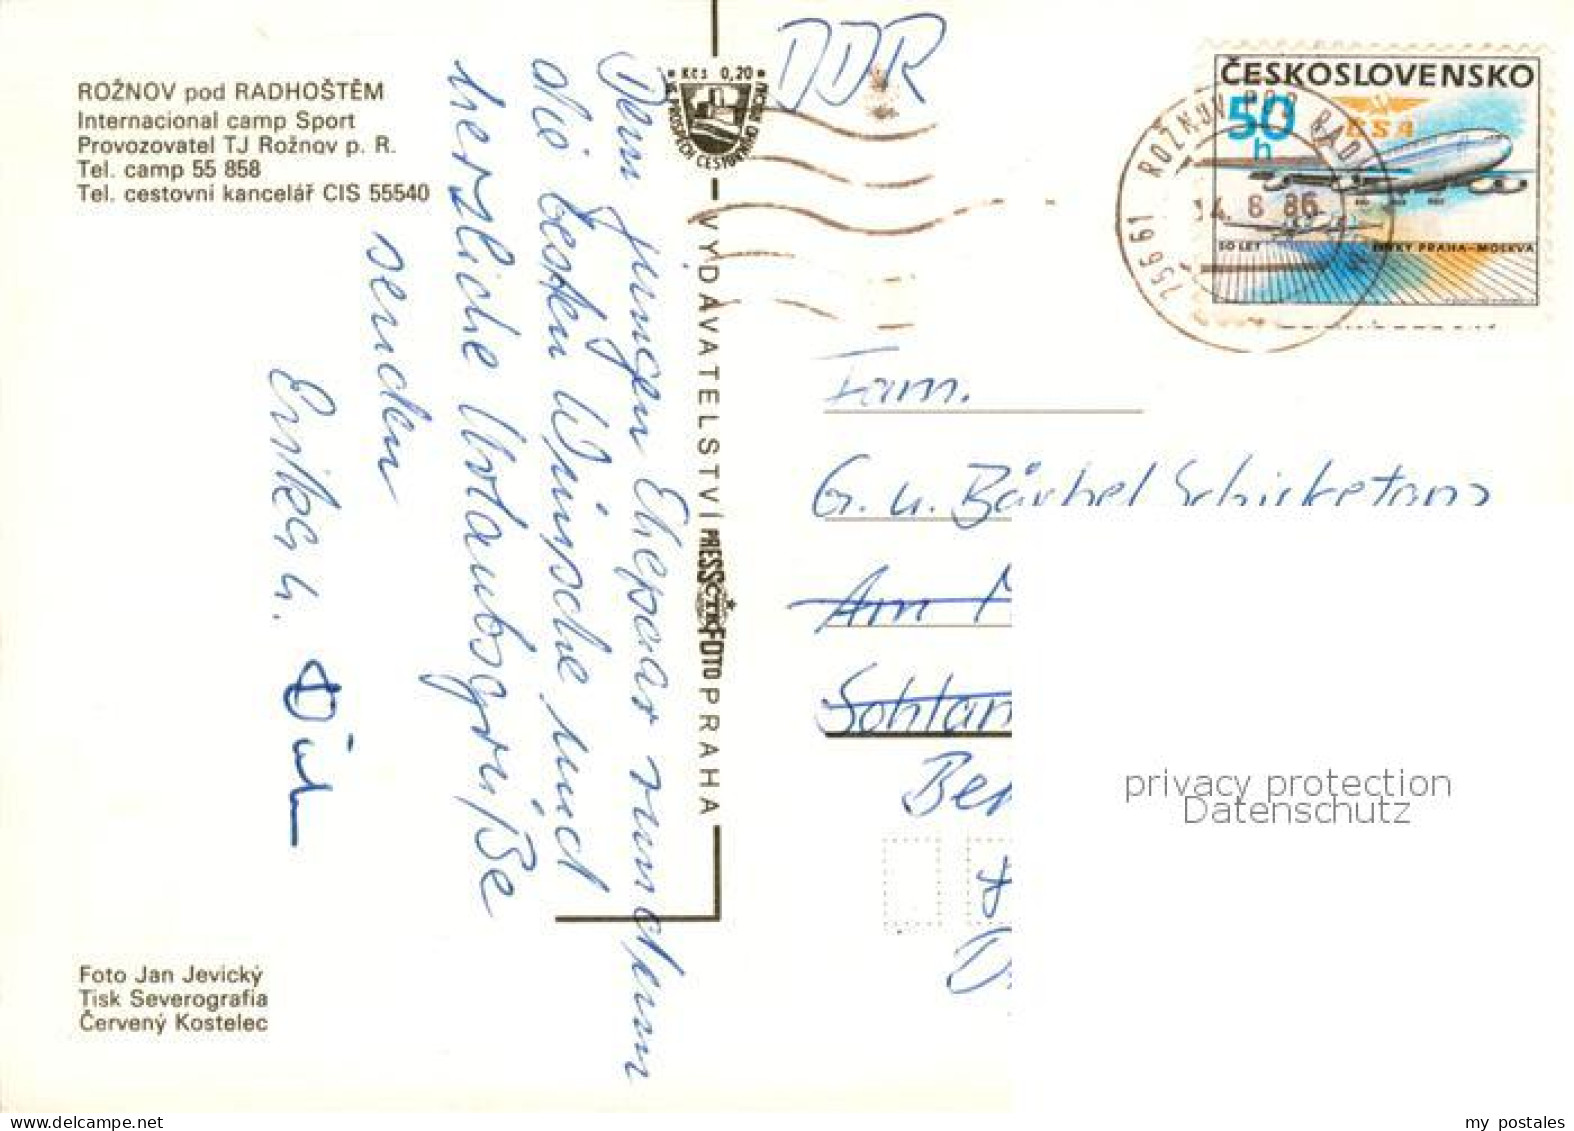 ROŽNOV pod RADHOŠTĚM
Internacional camp Sport
Provozovatel TJ Rožnov p. R.
Tel. camp 55 858
Tel. cestovní kancelář CIS 55540
Dem jungen Ehepaar nundum
die besten Wünsche und
herzliche Urlaubsgrüße
senden
Erika u.
Foto Jan Jevický
Tisk Severografia
Červený Kostelec
Kčs 0,20
VE PROSPĚCH CESTOVNÍHO RUCHU
VYDAVATELSTVÍ PRESSFOTO PRAHA
ČTK
DDR
ČESKOSLOVENSKO
50 h
ČSA
50 LET LINKY PRAHA–MOSKVA
756 61 ROŽNOV POD RADH
14. 8 86
Fam.
G. u. Bärbel Schicketanz
Am
Sohlan
Ber
privacy protection
Datenschutz
my postales